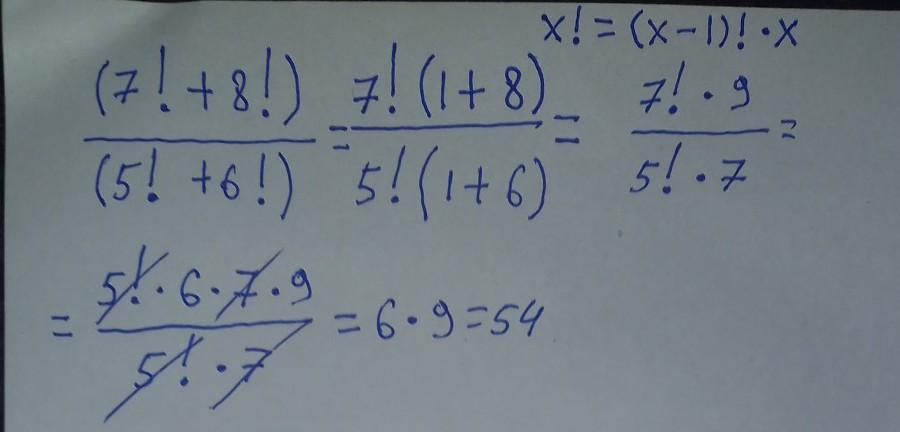 x! = (x-1)! · x
(7! + 8!) / (5! + 6!) = 7! (1 + 8) / 5! (1 + 6) = 7! · 9 / 5! · 7 =
= 5! · 6 · 7 · 9 / 5! · 7 = 6 · 9 = 54